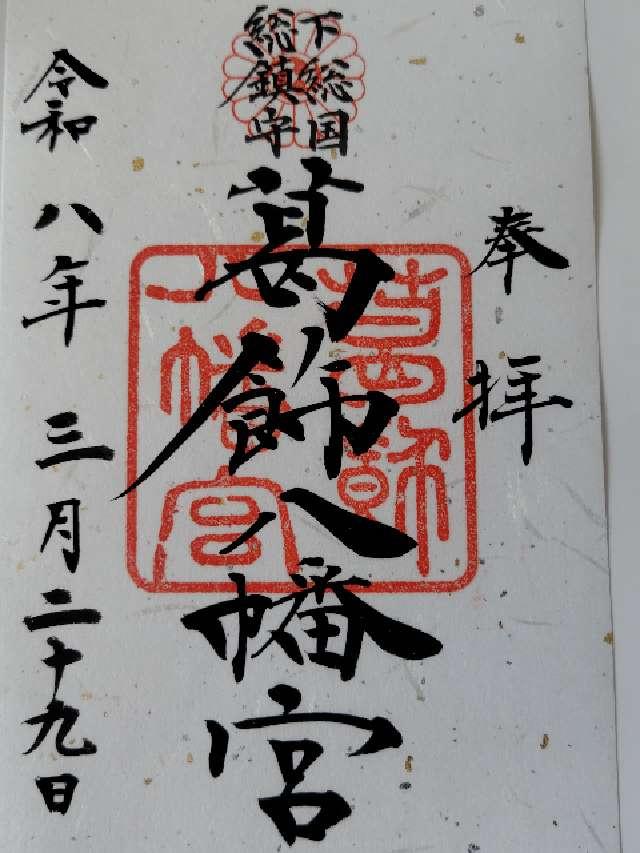 奉拝
下総国
総鎮守
葛飾八幡宮
葛飾
八幡宮
令和八年三月二十九日